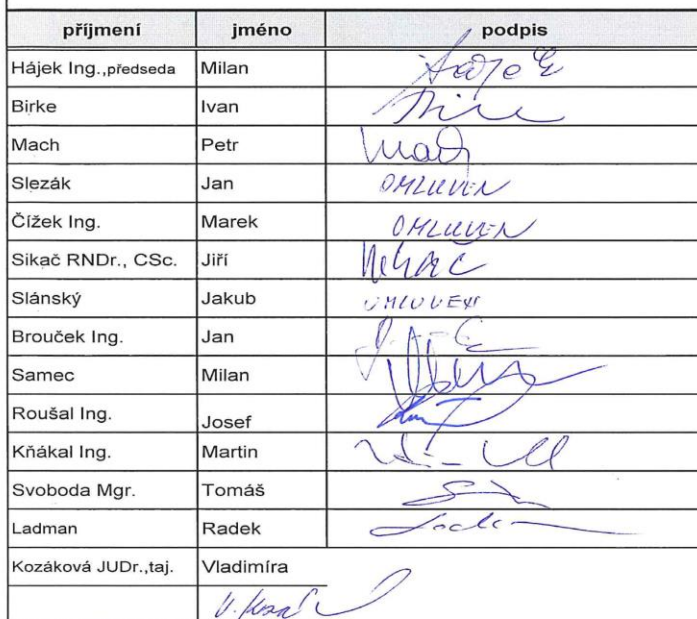 příjmení jméno podpis
Hájek Ing.,předseda Milan Hájek
Birke Ivan
Mach Petr Mach
Slezák Jan OMLUVEN
Čížek Ing. Marek OMLUVEN
Sikač RNDr., CSc. Jiří
Slánský Jakub OMLUVEN
Brouček Ing. Jan
Samec Milan
Roušal Ing. Josef
Kňákal Ing. Martin
Svoboda Mgr. Tomáš
Ladman Radek
Kozáková JUDr.,taj. Vladimíra